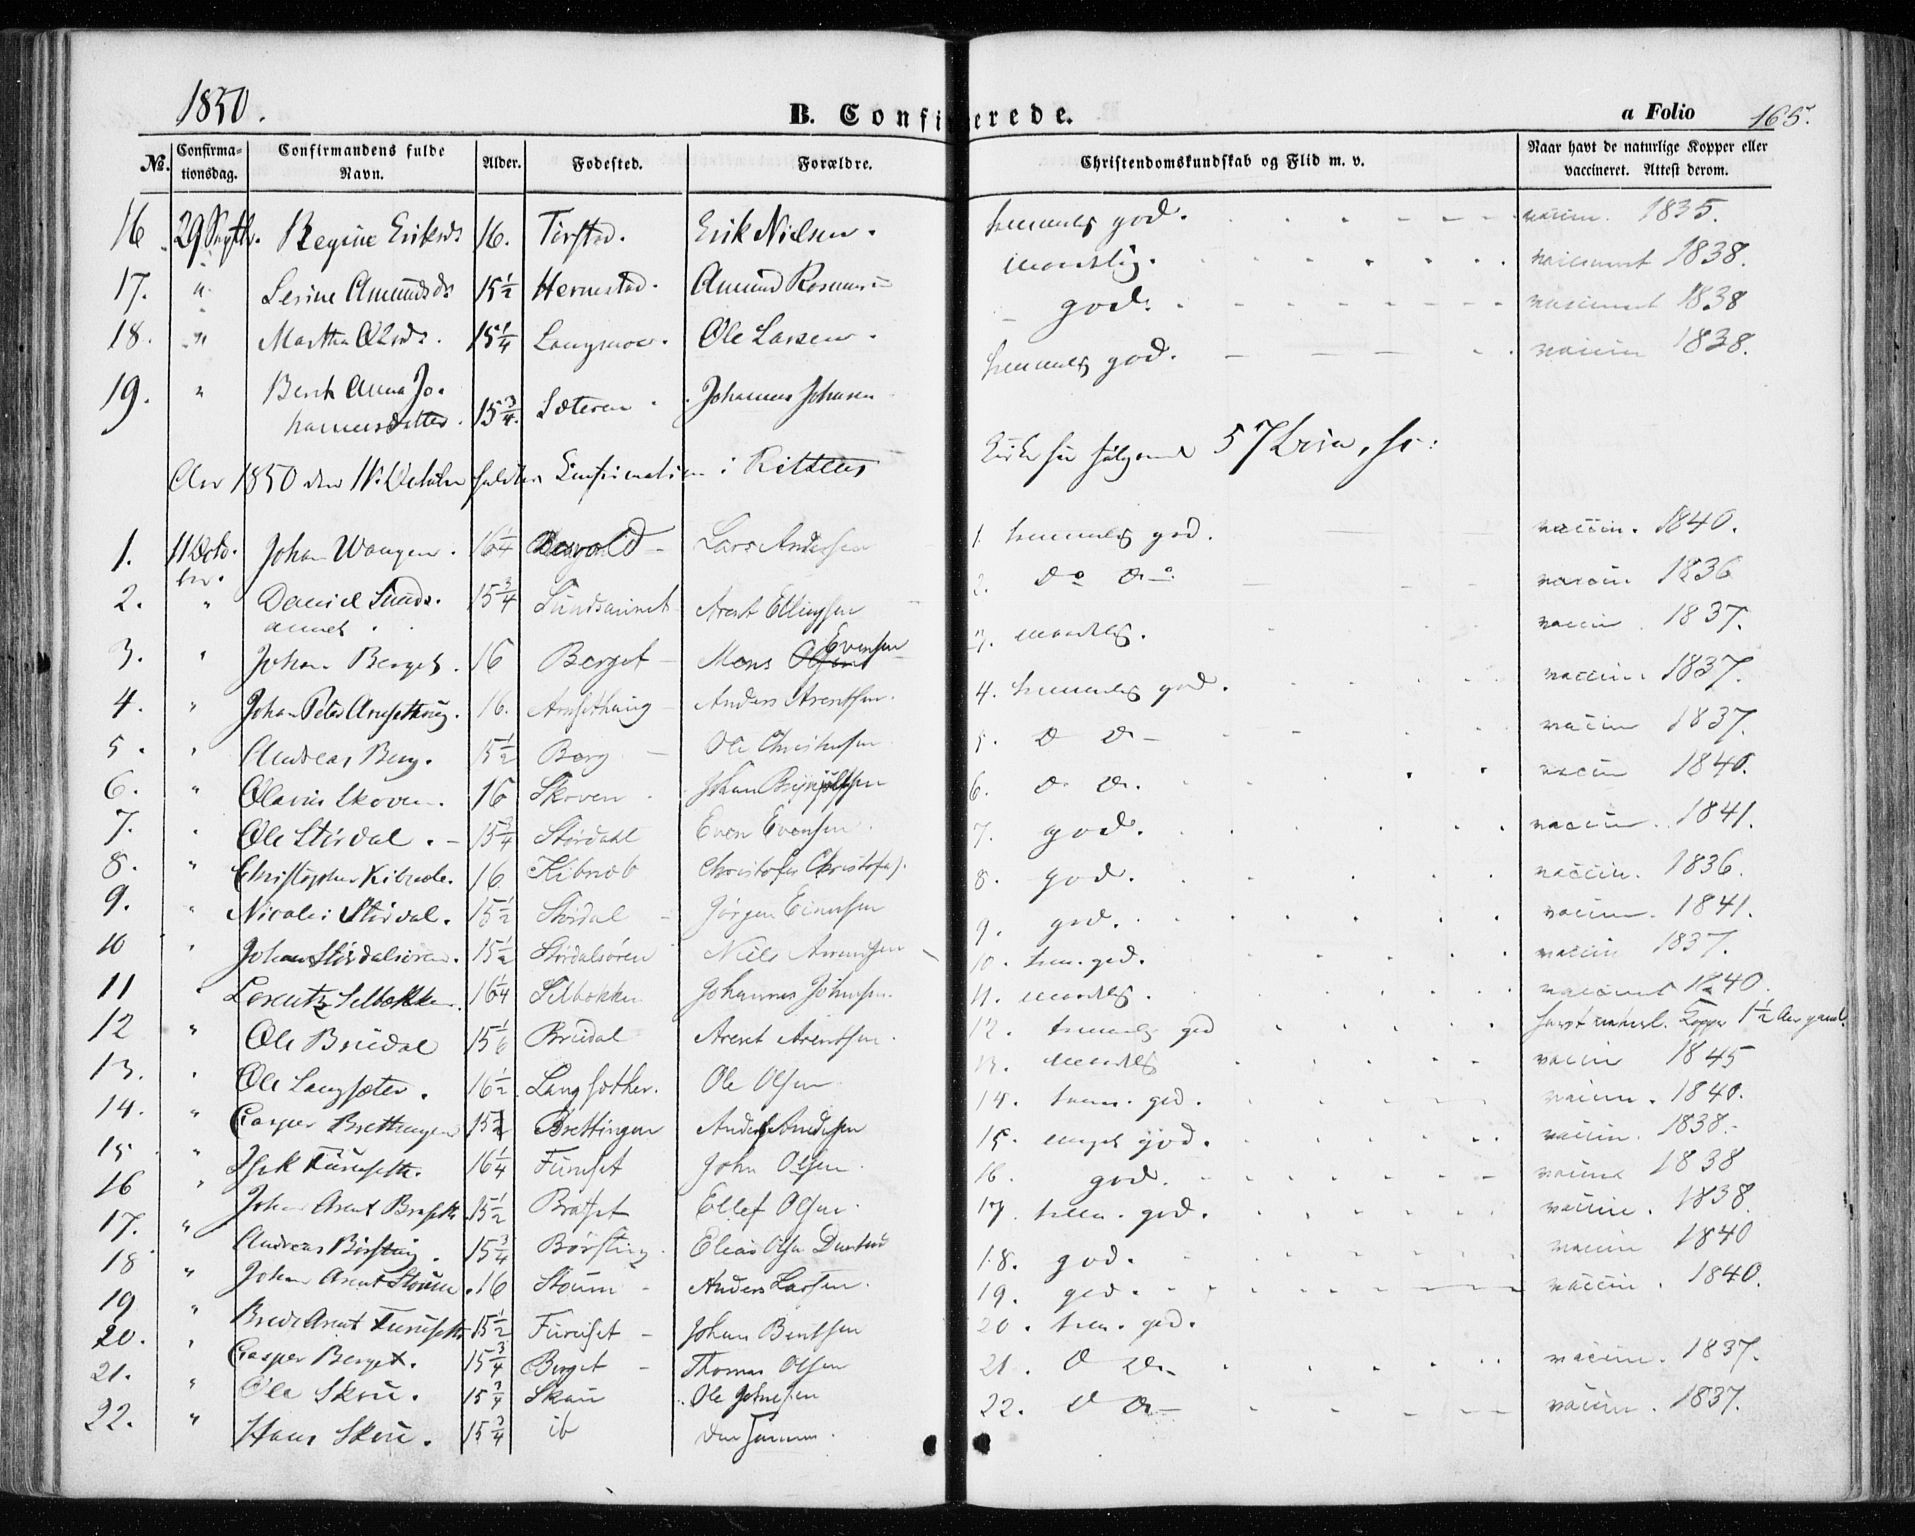 1850.
B. Confirmerede.
a Folio 165.
No. Confirmationsdag. Confirmandens fulde Navn. Alder. Fødested. Forældre. Christendomskundskab og Flid m. v. Naar havt de naturlige Kopper eller vaccineret. Attest derom.
16 29 Septbr. Regine Eriksd. 16. Tirstad. Erik Nielsen. temmelig god. vaccin. 1835.
17. " Serine Amundsd. 15½ Hernestad. Amund maadelig. vaccineret 1838.
18. " Martha Olsd. 15¼ Langmoe. Ole Larsen. god. vaccineret 1838
19. " Berith Anna Johannesdatter. 15¾ Sæteren. Johannes Johnsen temmelig god. vaccin 1838.
Aar 1850 den 11 October holdtes Confirmation i Kirke for følgende 57 Børn,
1. 11 Octobr. Johan Wangen. 16¼ Lars Andersen 1. temmelig god. vaccin. 1840.
2. " Daniel Sundsaunet. 15¾ Sundsaunet Arent Ellingsen 2. Do Do vaccin. 1836
3. " Johan Berget. 16 Berget Mons Evensen 3. maadelig. vaccin. 1837.
4. " Johan Peter Arnsethaug. 16. Arnsethaug Anders Arentsen. 4. temmelig god. vaccin. 1837.
5. " Andreas Berg. 15½ Berg Ole Christensen 5. D D vaccin 1837.
6. " Olavus Skoven. 16 Skoven Johan Brynjulfsen 6. D D. vaccin 1840.
7. " Ole Stördal. 15¾ Stördahl Even Evensen 7. god. vaccin. 1841.
8. " Christopher 16 Christofer Christofers. 8. god. vaccin. 1836.
9. " Nicolai Stördal. 15½ Stördal Jörgen Einersen 9. god. vaccin. 1841.
10 " Johan Stördalsören. 15½ Stördalsören Niels Arentsen 10. tem. god. vaccin 1837.
11 " Lorentz Selbekken. 16¼ Selbekken Johannes Johnsen. 11. maadelig. vaccineret 1840.
12 " Ole Brüdal 15 1/6 Brüdal Arent Arentsen. 12. temmelig god havt naturl. Kopper 1½ Aar gaml.
13. " Ole Langsæter. 16½ Langsæther. Ole Olsen 13. maadelig vaccin 1845
14. " Casper Brettingen 15½ Brettingen Anders Andersen 14. tem. god. vaccin. 1840.
15 " Isak Furuseth. 16¼ Furuset John Olsen. 15. meget god. vaccin. 1838.
16 " Johan Arent Braseth 15½ Bratset Ellef Olsen. 16. god. vaccin 1838
17. " Andreas Börsting. 15¾ Börsting. Elias Olsen 17. tem. god. vaccin. 1838.
18 " Johan Arent Stoum. 16 Stoum Anders Larsen. 18. god. vaccin 1840
19 " Brede Arent Furuseth 15½ Furuset Johan Bentsen 19. god. vaccin. 1840.
20. " Casper Berget. 15¾ Berget Thomas Olsen 20. tem. god.
21. " Ole Skau. 15¾ Skau Ole Johnsen 21. D D vaccin. 1837.
22. " Hans Skau. 15¾ ib den samme. 22. D D vaccin. 1837.